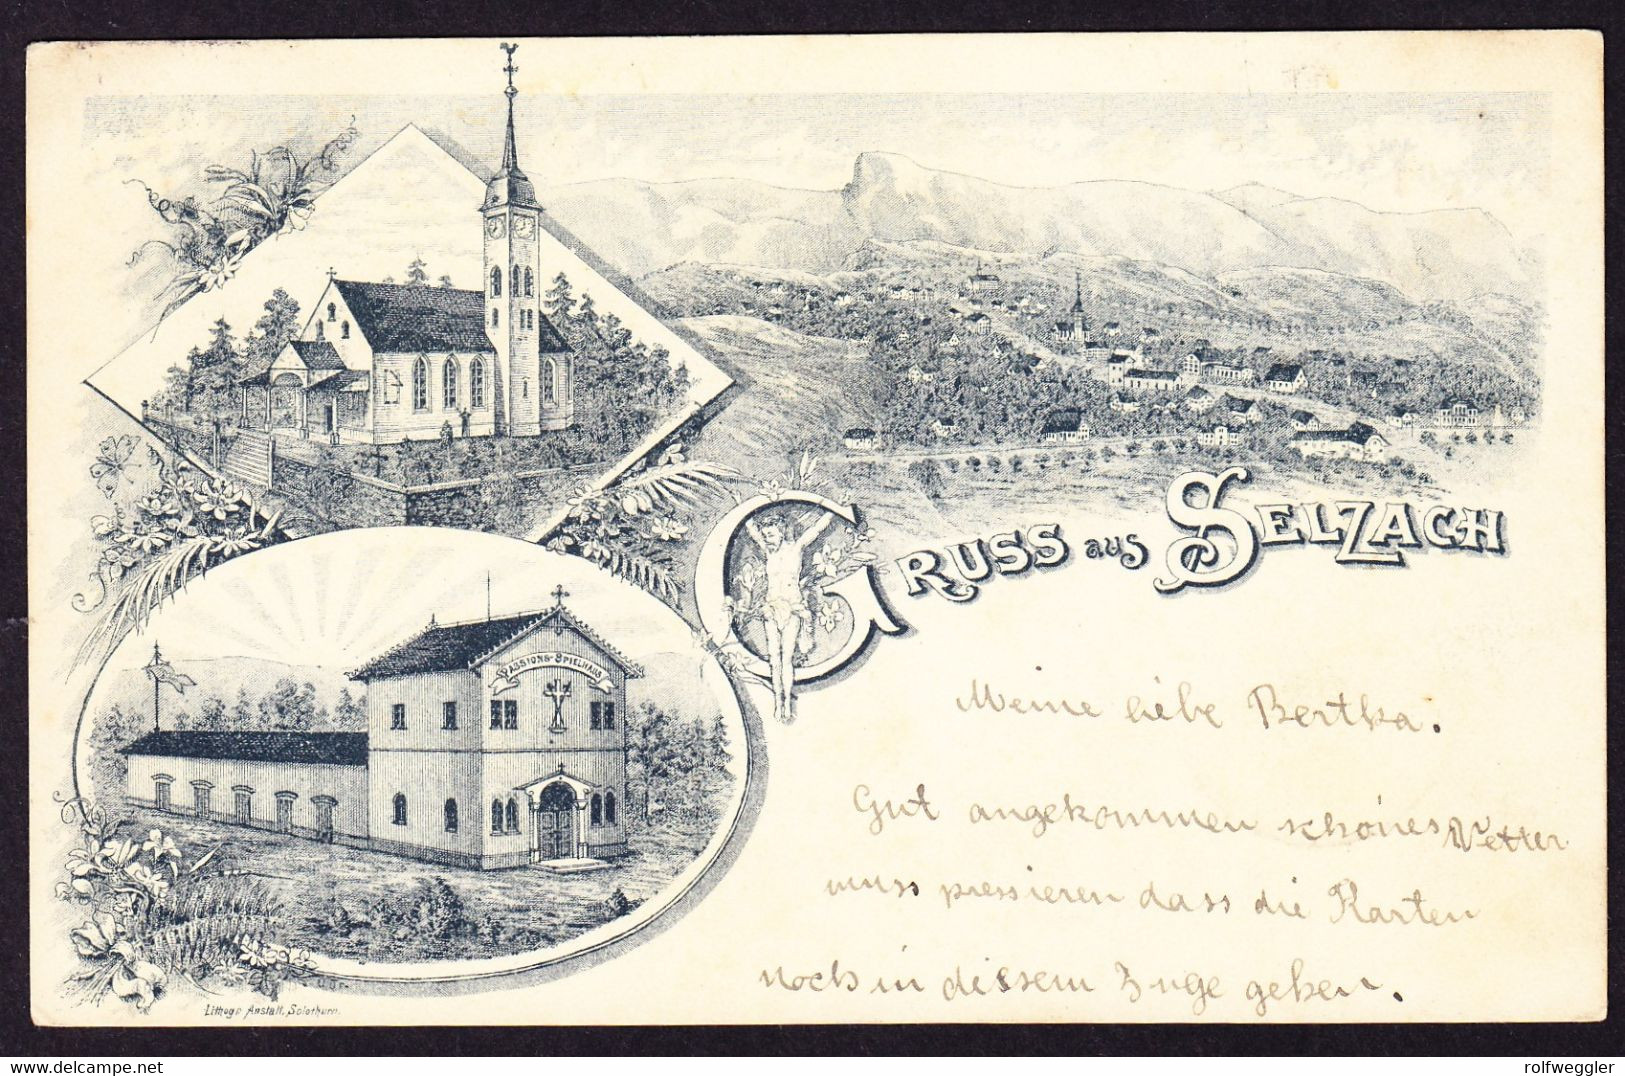 PASSIONS-SPIELHAUS
GRUSS aus SELZACH
Meine liebe Bertha.
Gut angekommen schönes Wetter
muss pressieren dass die Karten
noch in diesem Zuge gehen.
Lithogr. Anstalt, Solothurn.
rolfweggler